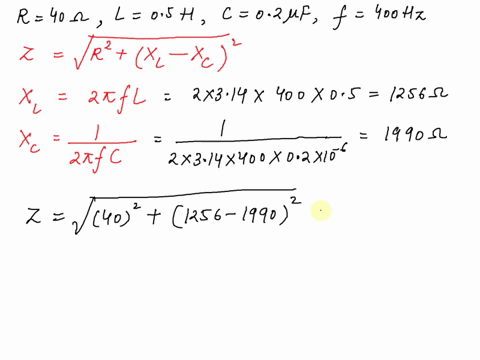 R = 40 Ω, L = 0.5 H, C = 0.2 μF, f = 400 Hz
Z = √(R² + (X_L − X_C)²)
X_L = 2πfL = 2×3.14×400×0.5 = 1256 Ω
X_C = 1/(2πfC) = 1/(2×3.14×400×0.2×10⁻⁶) = 1990 Ω
Z = √((40)² + (1256−1990)²)